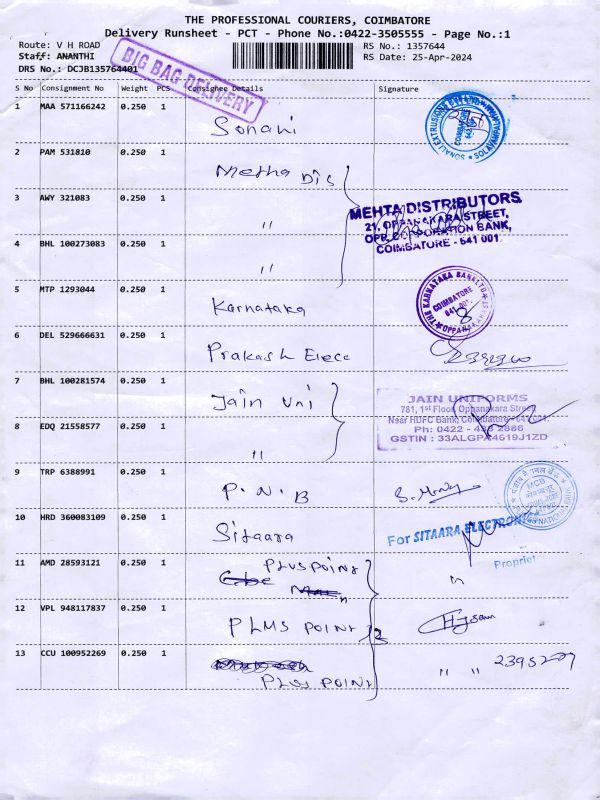 THE PROFESSIONAL COURIERS, COIMBATORE
Delivery Runsheet - PCT - Phone No.:0422-3505555 - Page No.:1
Route: V H ROAD RS No.: 1357644
Staff: ANANTHI RS Date: 25-Apr-2024
DRS No.: DCJB135764401
BIG BAG DELIVERY
S No Consignment No Weight PCS Consignee Details Signature
1 MAA 571166242 0.250 1 Sonani
2 PAM 531810 0.250 1 Metha Dis
3 AWY 321083 0.250 1 "
MEHTA DISTRIBUTORS
21, OPPANAKARA STREET,
OPP. CORPORATION BANK,
COIMBATORE - 641 001.
4 BHL 100273083 0.250 1 "
5 MTP 1293044 0.250 1 Karnataka
THE KARNATAKA BANK LTD
COIMBATORE
641-001.
6 DEL 529666631 0.250 1 Prakash Elece
7 BHL 100281574 0.250 1 Jain Uni
JAIN UNIFORMS
781, 1st Floor, Oppanakara Street
Near HDFC Bank, Coimbatore - 641001.
8 EDQ 21558577 0.250 1 "
GSTIN : 33ALGPA4619J1ZD
9 TRP 6388991 0.250 1 P.N.B
MCB
10 HRD 360083109 0.250 1 Sitaara
For SITAARA ELECTRONICS
Propriet
11 AMD 28593121 0.250 1 PLUS POINT "
12 VPL 948117837 0.250 1 PLMS POINT
13 CCU 100952269 0.250 1 PLUS POINT " "